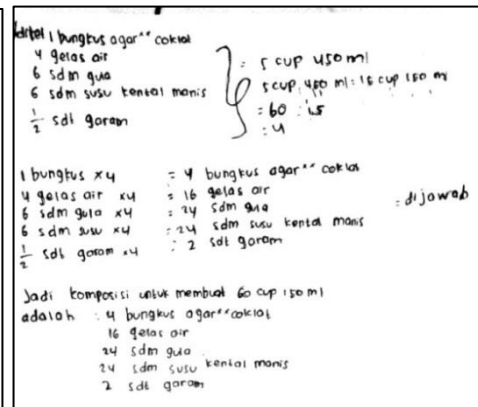 1 bungkus agar" coklat
4 gelas air
6 sdm gua
6 sdm susu kental manis
1/2 sdt garam
= 5 cup 450 ml
5 cup 450 ml : 15 cup 150 ml
= 60 : 15
= 4
1 bungkus x4 = 4 bungkus agar" coklat
4 gelas air x4 = 16 gelas air
6 sdm gula x4 = 24 sdm gua
6 sdm susu x4 = 24 sdm susu kental manis
1/2 sdt garam x4 : 2 sdt garam
= dijawab
Jadi komposisi untuk membuat 60 cup 150 ml
adalah : 4 bungkus agar" coklat
16 gelas air
24 sdm gua
24 sdm susu kental manis
2 sdt garam